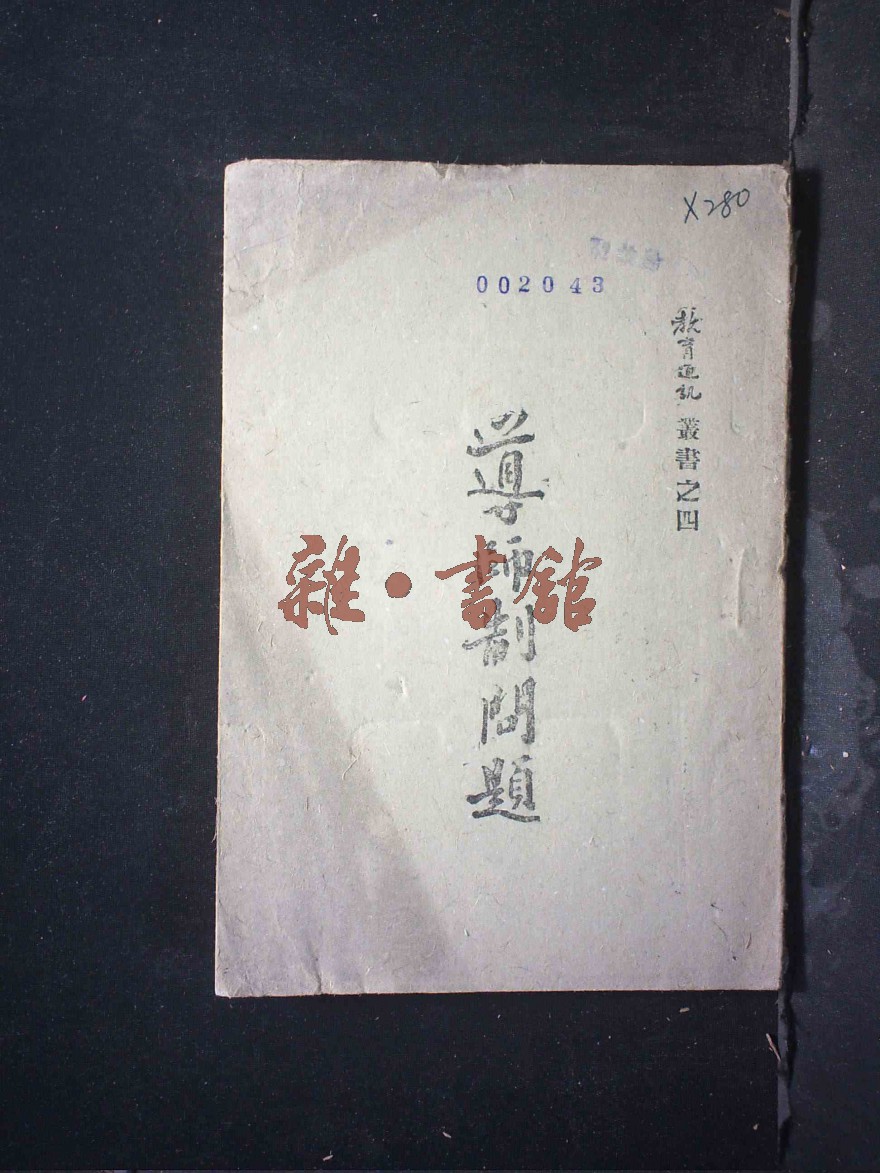 X280
002043
教育通訊叢書之四
導師制問題
雜·書館